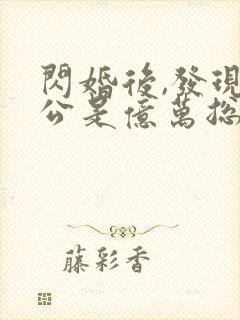 閃婚後,發現
公是億萬總
藤彩香